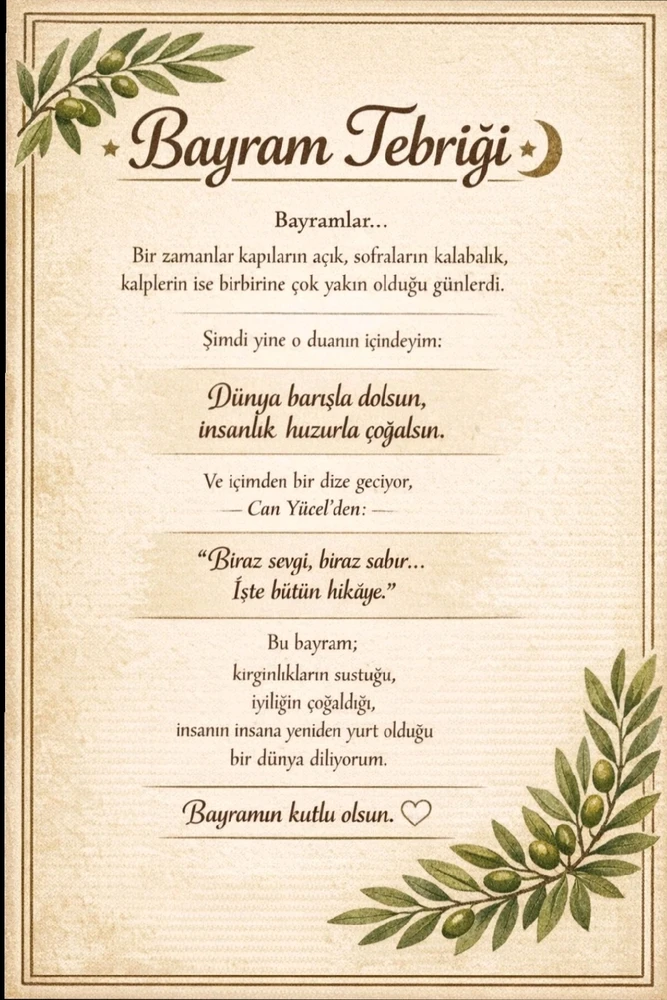 Bayram Tebriği
Bayramlar...
Bir zamanlar kapıların açık, sofraların kalabalık,
kalplerin ise birbirine çok yakın olduğu günlerdi.
Şimdi yine o duanın içindeyim:
Dünya barışla dolsun,
insanlık huzurla çoğalsın.
Ve içimden bir dize geciyor,
— Can Yücel'den: —
"Biraz sevgi, biraz sabır...
İşte bütün hikâye."
Bu bayram;
kırgınlıkların sustuğu,
iyiliğin çoğaldığı,
insanın insana yeniden yurt olduğu
bir dünya diliyorum.
Bayramın kutlu olsun.